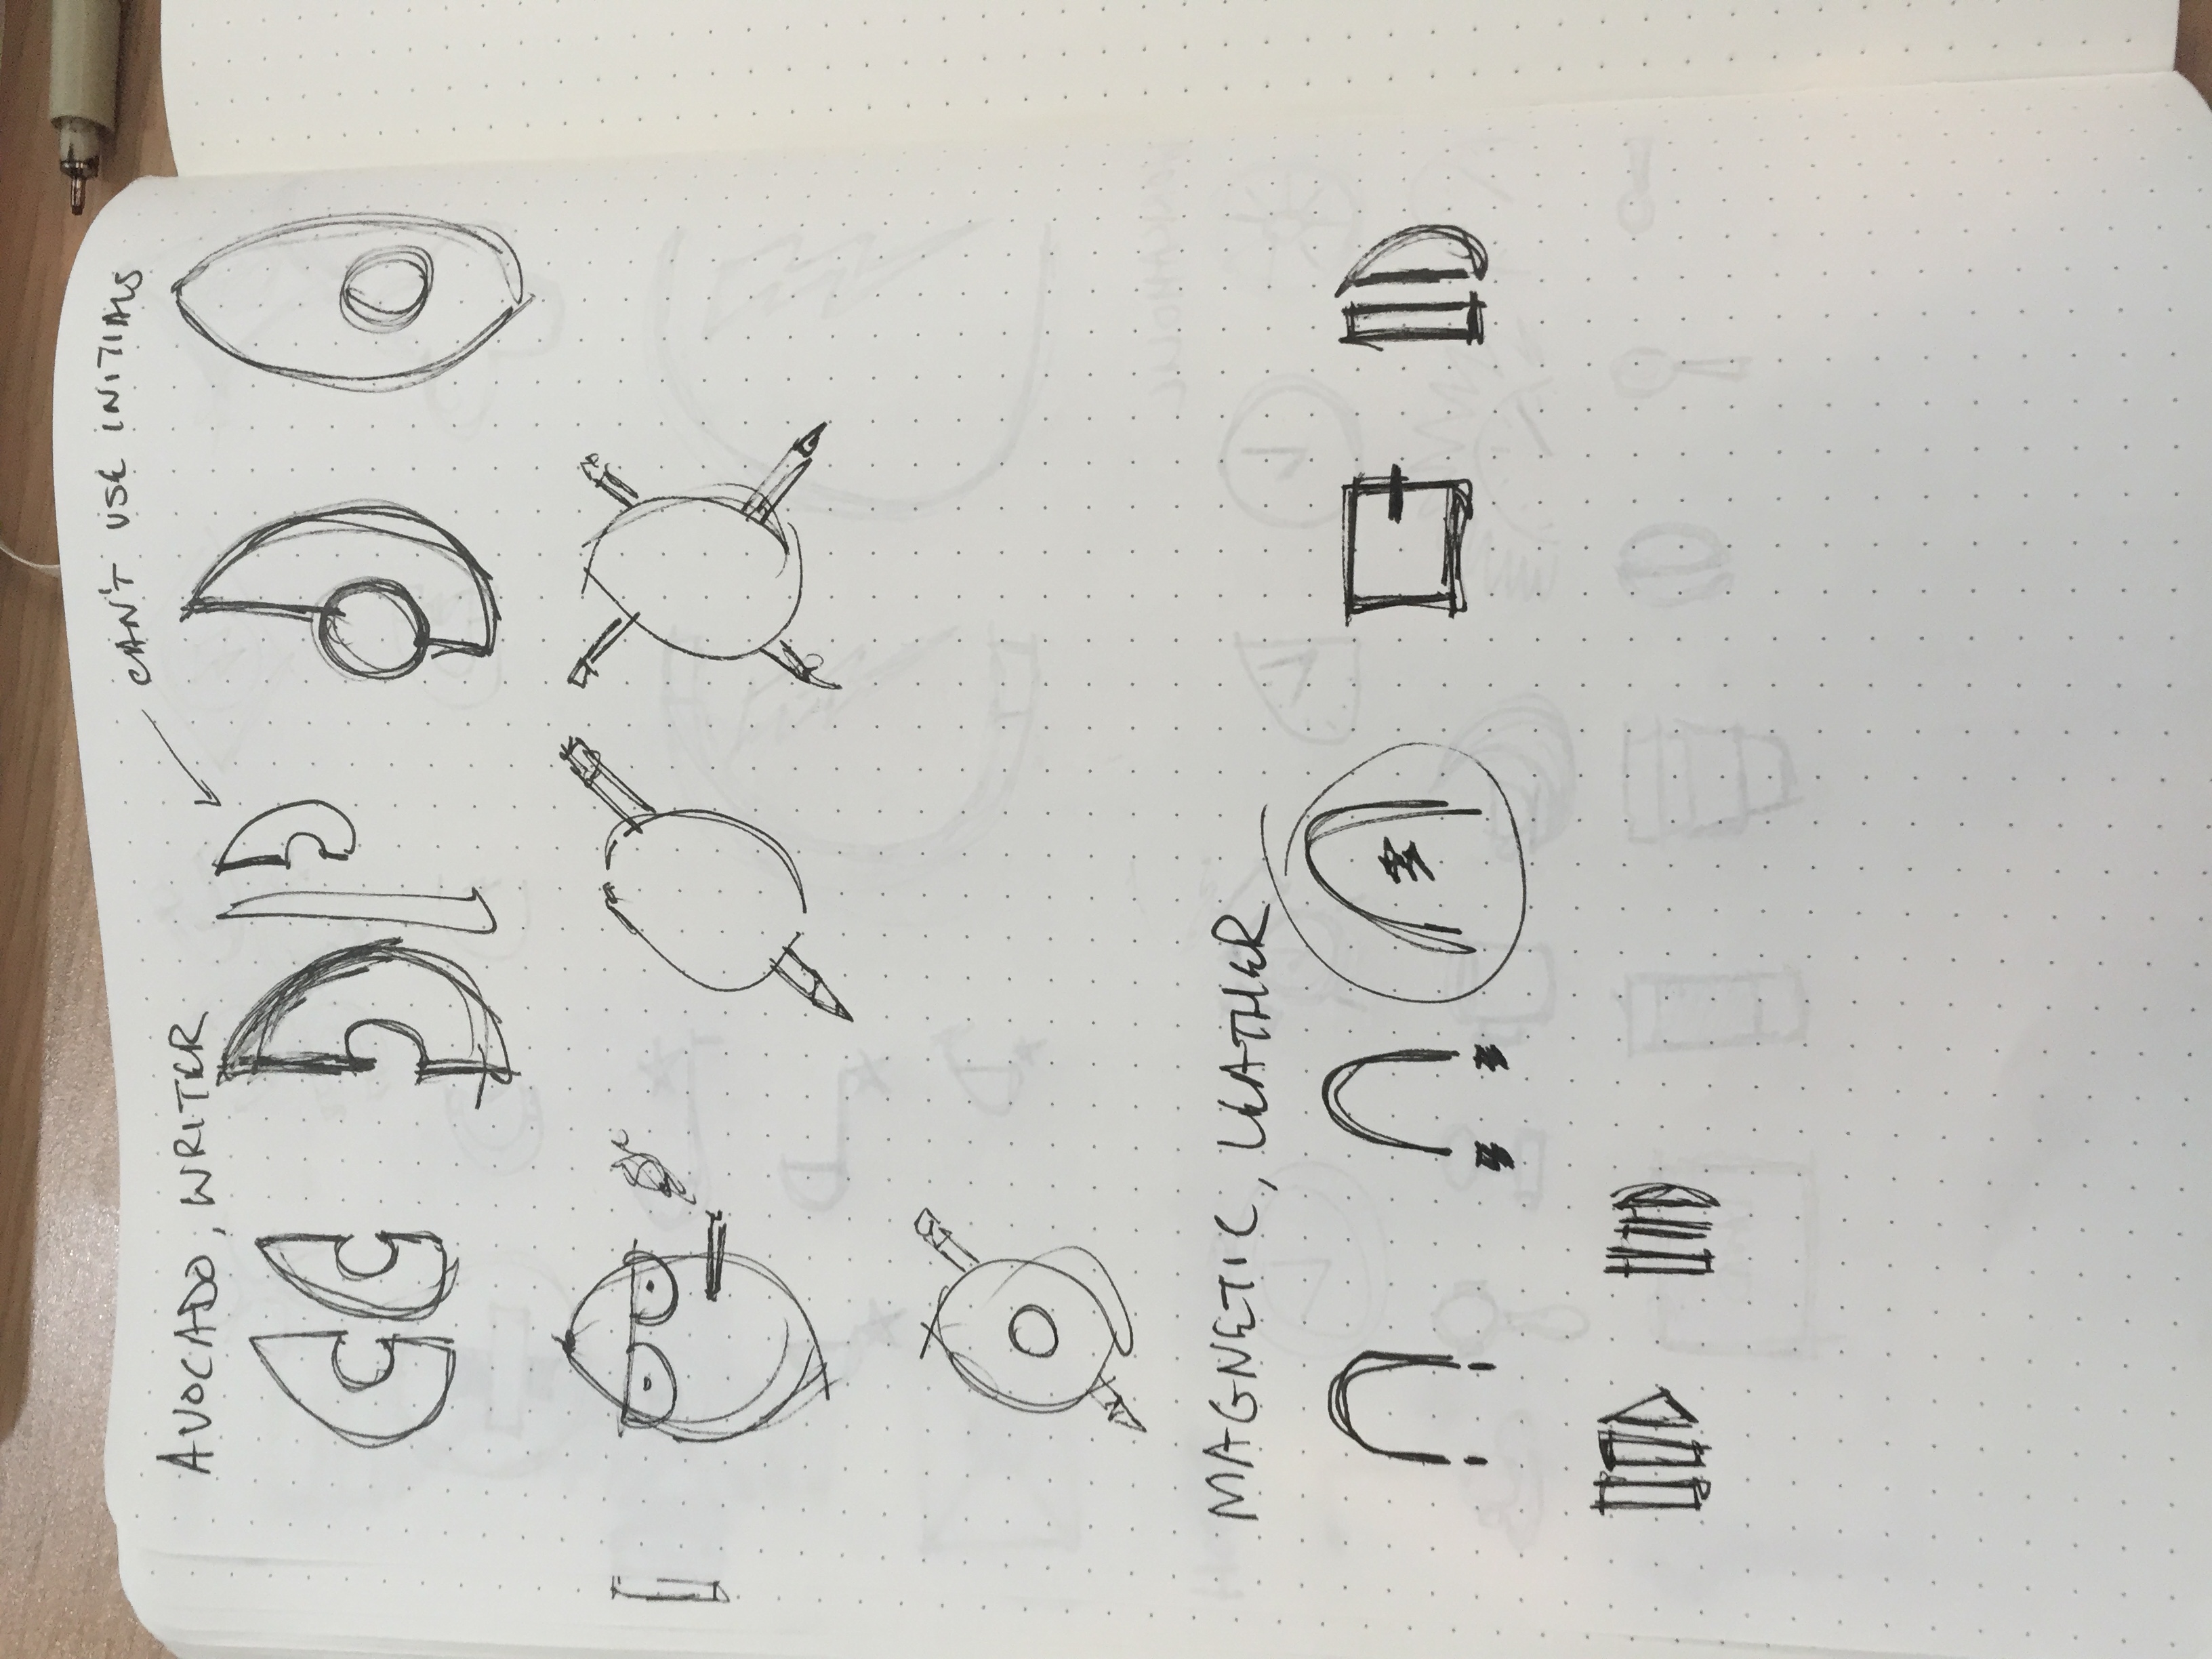 CAN'T USE INITIALS
AVOCADO, WRITER
MAGNETIC, LEATHER